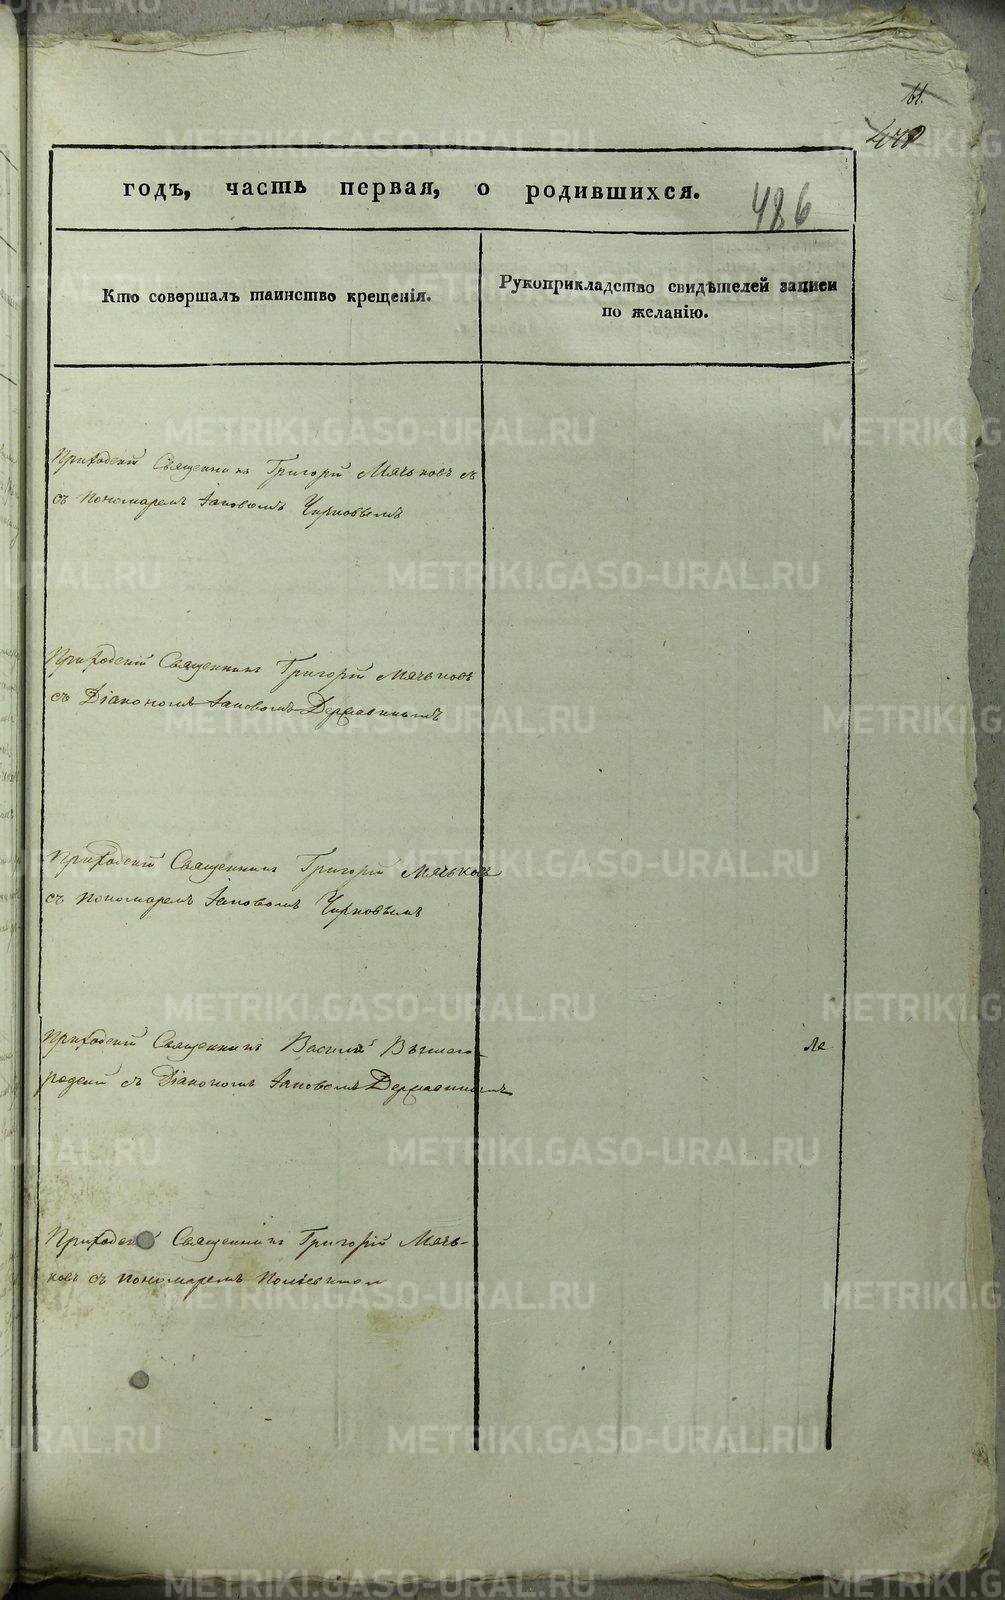 61.
486
годъ, часть первая, о родившихся.
Кто совершалъ таинство крещенія.
Рукоприкладство свидѣтелей записи
по желанію.
Приходскій Священникъ Григорій Мячьковъ
съ пономаремъ Іаковомъ Чирковымъ
Приходскій Священникъ Григорій Мячьковъ
съ Діакономъ Іаковомъ Державинымъ
Приходскій Священникъ Григорій Мячьковъ
съ пономаремъ Іаковомъ Чирковымъ
Приходскій Священникъ Василій Вышего-
родскій съ Діакономъ Іаковомъ Державинымъ
Приходскій Священникъ Григорій Мячь-
ковъ съ пономаремъ
METRIKI.GASO-URAL.RU